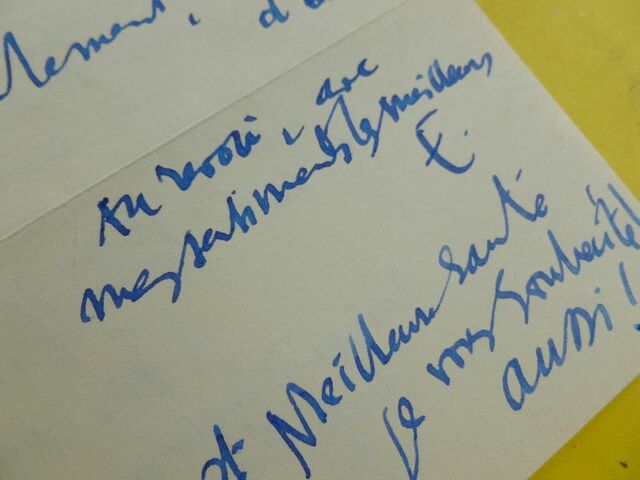 lement, d'a
Au revoir, avec
mes sentiments les meilleurs
E.
et Meilleure Santé
je vous souhaite
aussi!